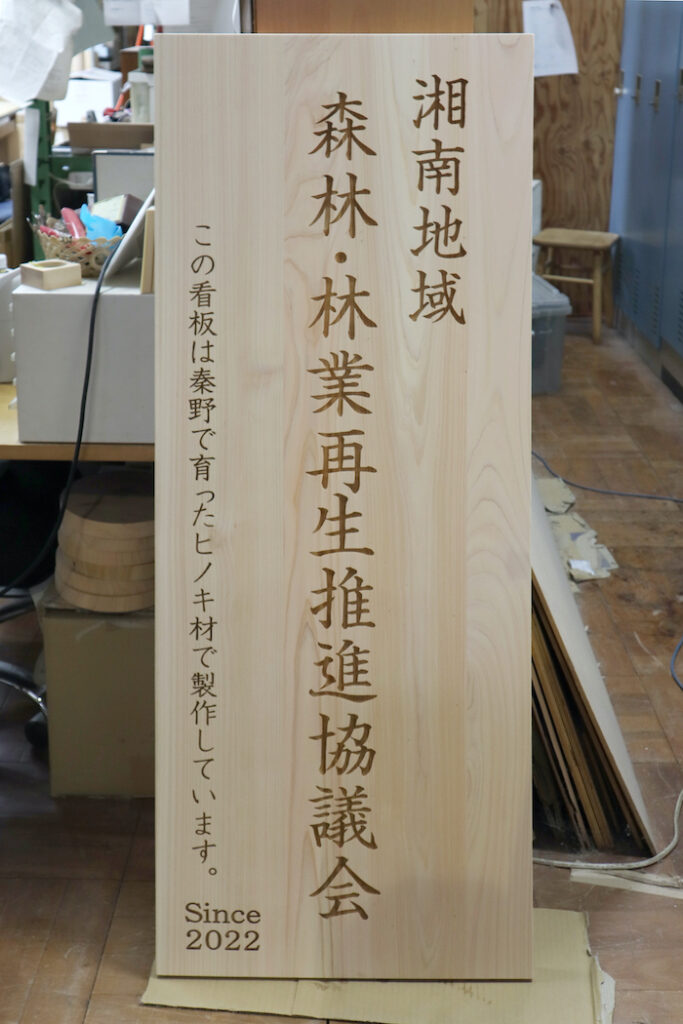 湘南地域
森林・林業再生推進協議会
この看板は秦野で育ったヒノキ材で製作しています。
Since
2022